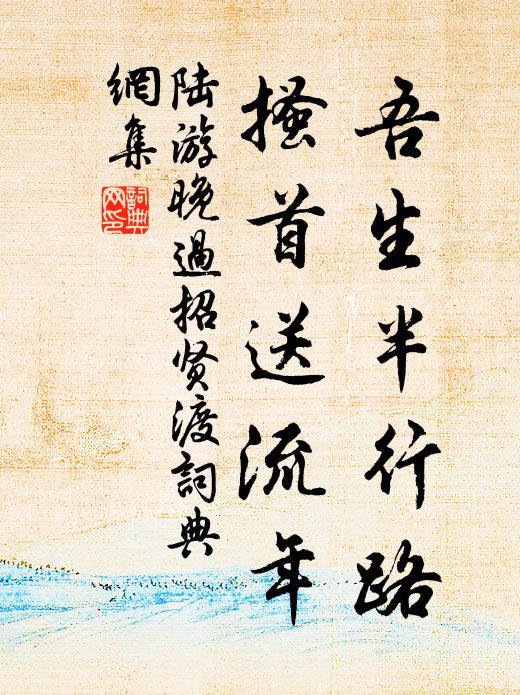 吾生半行路
搔首送流年
陆游晚過招贤渡詞典
網集
詞典网印